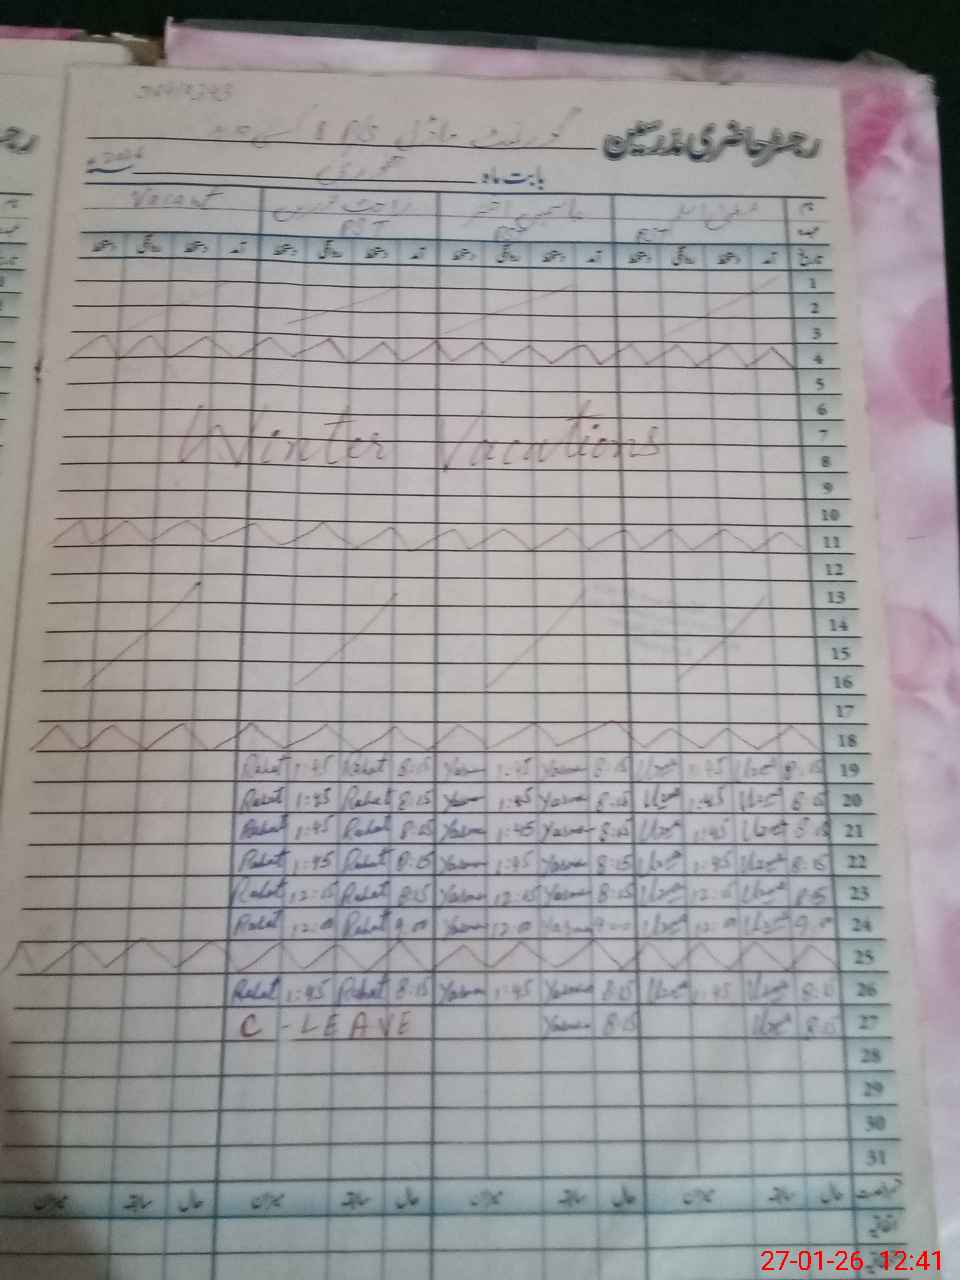 رجسٹر حاضری مدرسین
گورنمنٹ ماڈل
بابت ماہ جنوری 2026
Vacant
PST
PST
نام
عہدہ
تاریخ آمد دستخط روانگی دستخط آمد دستخط روانگی دستخط آمد دستخط روانگی دستخط آمد دستخط روانگی دستخط
1
2
3
4
5
6
Winter Vacations
7
8
9
10
11
12
13
14
15
16
17
18
Rahat 1:45 Rahat 8:15 Yasmn 1:45 Yasmn 8:15 Uzma 1:45 Uzma 8:15 19
Rahat 1:45 Rahat 8:15 Yasmn 1:45 Yasmn 8:15 Uzma 1:45 Uzma 8:15 20
Rahat 1:45 Rahat 8:15 Yasmn 1:45 Yasmn 8:15 Uzma 1:45 Uzma 8:15 21
Rahat 1:45 Rahat 8:15 Yasmn 1:45 Yasmn 8:15 Uzma 1:45 Uzma 8:15 22
Rahat 12:15 Rahat 8:15 Yasmn 12:15 Yasmn 8:15 Uzma 12:15 Uzma 8:15 23
Rahat 12:00 Rahat 9:00 Yasmn 12:00 Yasmn 9:00 Uzma 12:00 Uzma 9:00 24
25
Rahat 1:45 Rahat 8:15 Yasmn 1:45 Yasmn 8:15 Uzma 1:45 Uzma 8:15 26
C - LEAVE Yasmn 8:15 Uzma 8:15 27
28
29
30
31
حال سابقہ میزان حال سابقہ میزان حال سابقہ میزان حال سابقہ میزان
اتفاقیہ
27-01-26 12:41